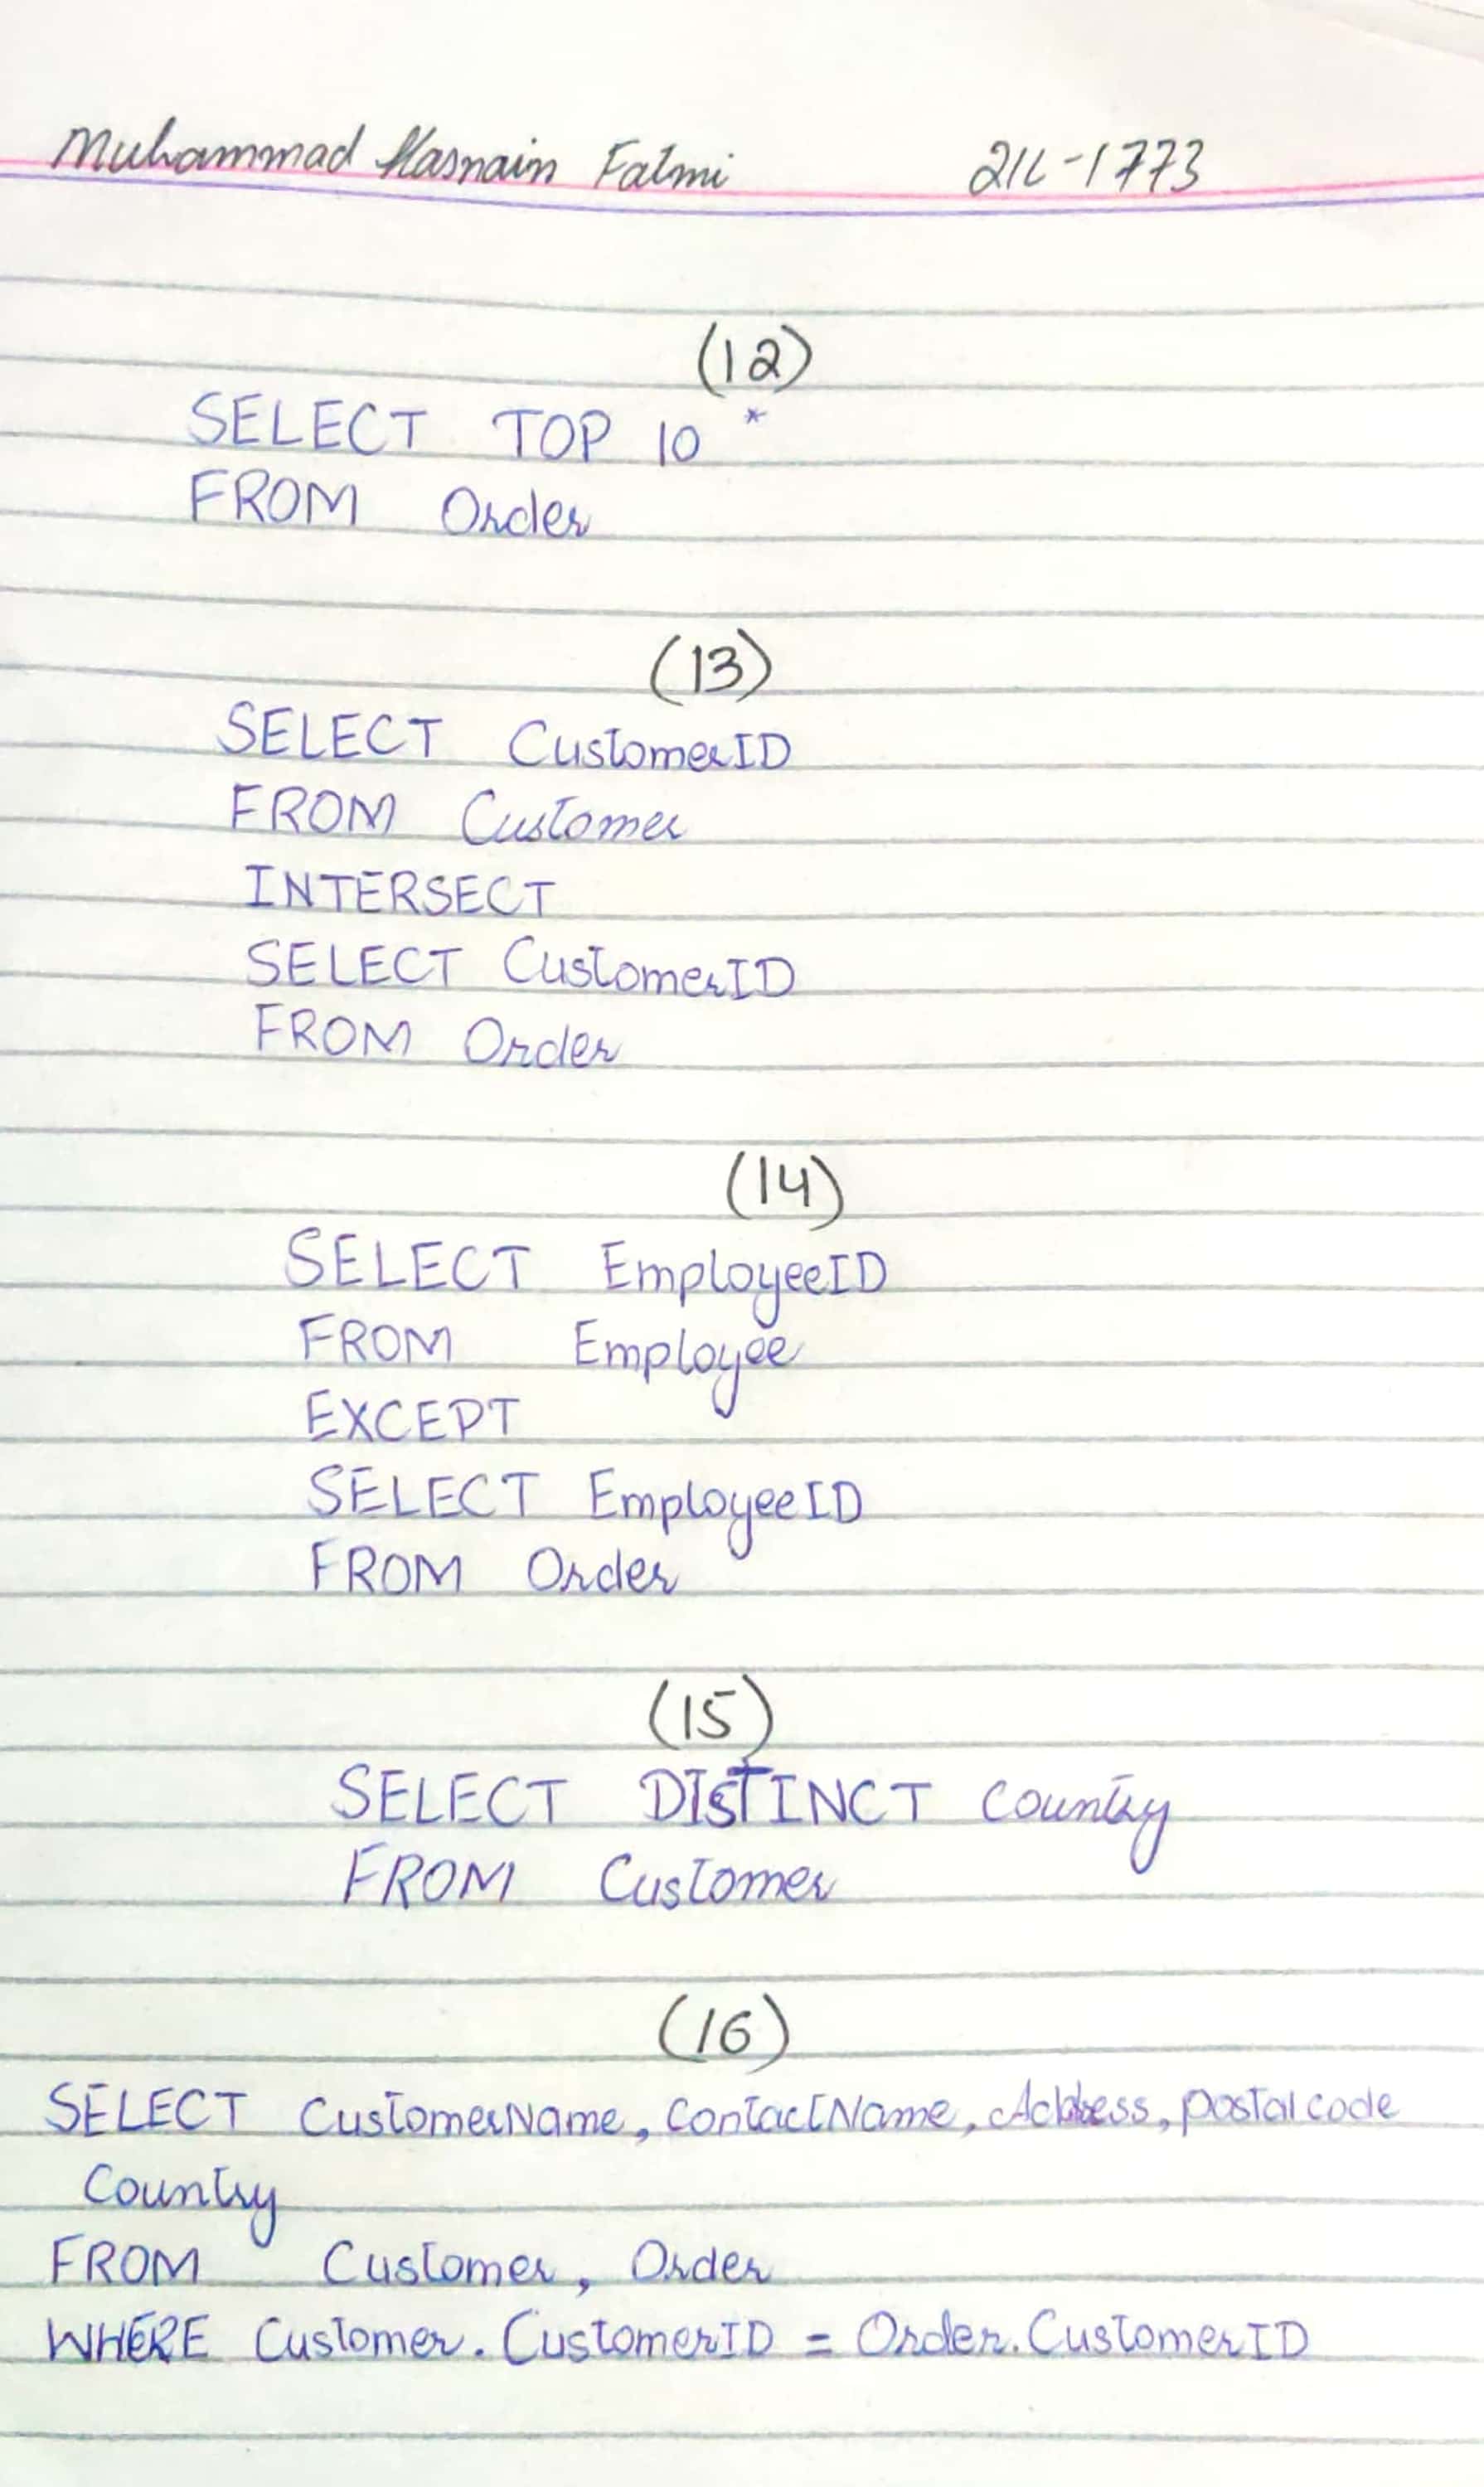 Muhammad Hasnain Fatmi 21L-1773
(12)
SELECT TOP 10 *
FROM Order
(13)
SELECT CustomerID
FROM Customer
INTERSECT
SELECT CustomerID
FROM Order
(14)
SELECT EmployeeID
FROM Employee
EXCEPT
SELECT EmployeeID
FROM Order
(15)
SELECT DISTINCT Country
FROM Customer
(16)
SELECT CustomerName, ContactName, Address, postalcode
Country
FROM Customer, Order
WHERE Customer.CustomerID = Order.CustomerID